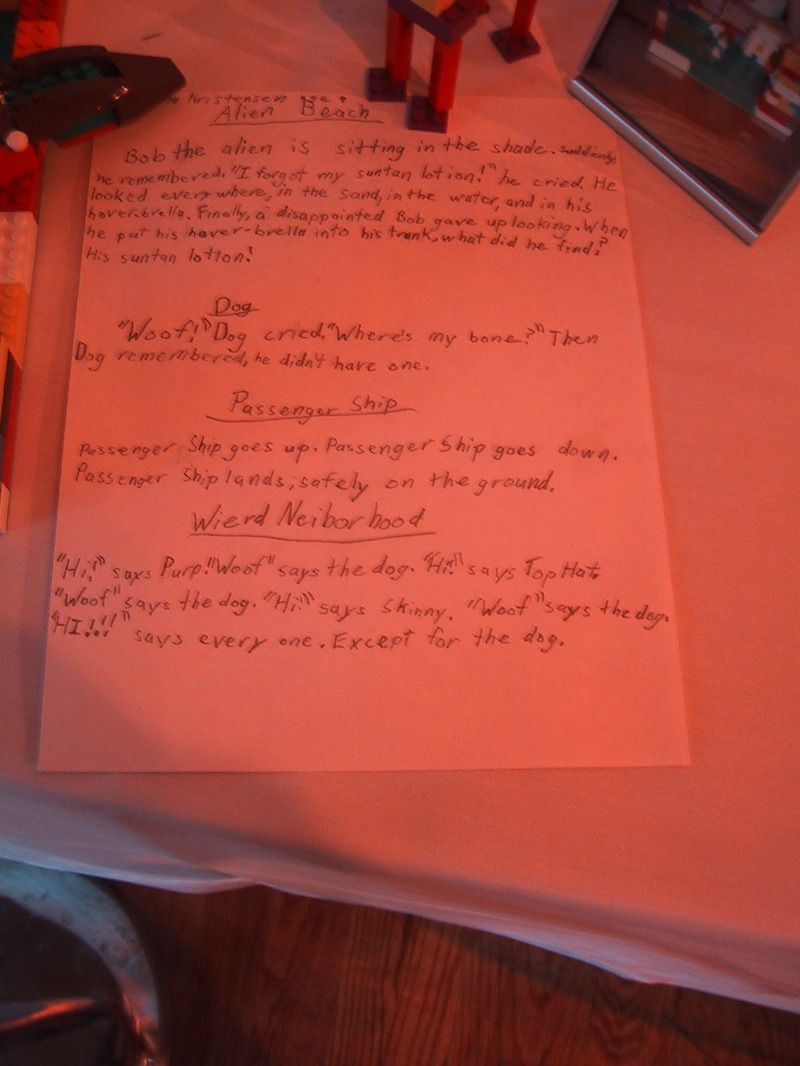 Kristensen
Alien Beach
Bob the alien is sitting in the shade. Suddenly,
he remembered. "I forgot my suntan lotion!" he cried. He
looked everywhere, in the sand, in the water, and in his
hover-brella. Finally, a disappointed Bob gave up looking. When
he put his hover-brella into his trunk, what did he find?
His suntan lotion!
Dog
"Woof!" Dog cried. "Where's my bone?" Then
Dog remembered, he didn't have one.
Passenger Ship
Passenger Ship goes up. Passenger Ship goes down.
Passenger Ship lands, safely on the ground.
Wierd Neiborhood
"Hi!" says Purp. "Woof" says the dog. "Hi!" says Top Hat.
"Woof" says the dog. "Hi!" says Skinny. "Woof" says the dog.
"HI!!!" says every one. Except for the dog.